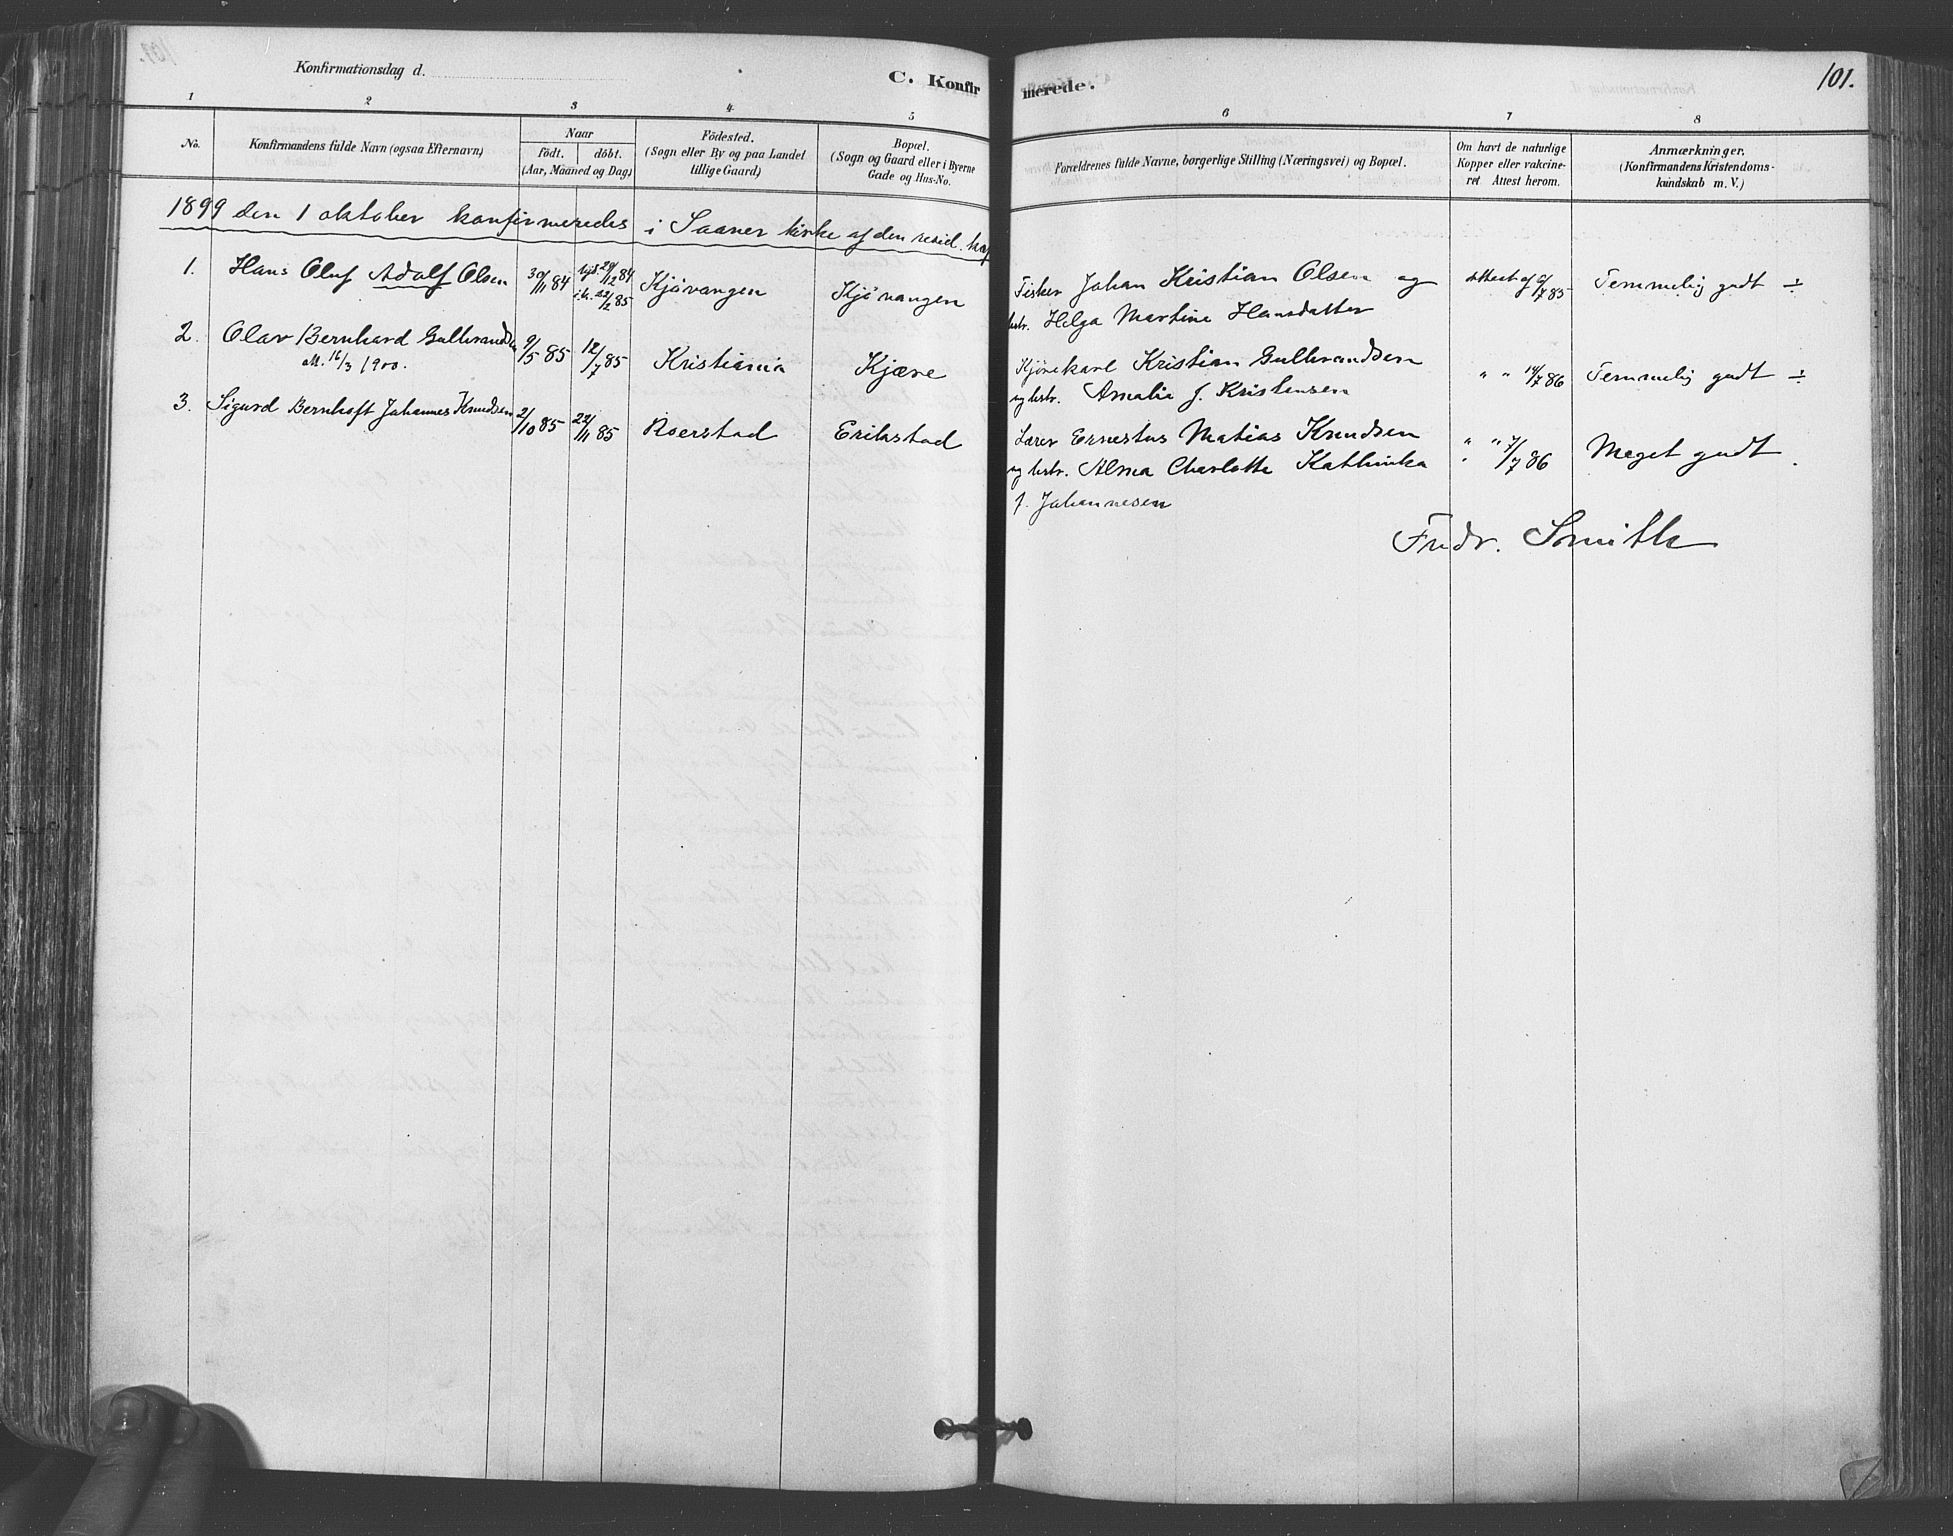 Konfirmationsdag d.
C. Konfir
merede.
101.
1 2 3 4 5 6 7 8
No.
Konfirmandens fulde Navn (ogsaa Efternavn)
Naar
født. døbt.
(Aar, Maaned og Dag)
Födested.
(Sogn eller By og paa Landet
tillige Gaard)
Bopæl.
(Sogn og Gaard eller i Byerne
Gade og Hus-No.
Forældrenes fulde Navne, borgerlige Stilling (Næringsvei) og Bopæl.
Om havt de naturlige
Kopper eller vakcine-
ret Attest herom.
Anmærkninger,
(Konfirmandens Kristendoms-
kundskab m. V.)
1899 den 1 oktober konfirmeredes i Saaner kirke af den resid. kap
1. Hans Oluf Adolf Olsen 30/11 84 hjd 29/12 84 i k. 22/2 85 Kjøvangen Kjøvangen Fisker Johan Kristian Olsen og
hstr. Helga Martine Hansdatter attest af 6/7 85 Temmelig godt ÷
2. Olav Bernhard Gulbrandsen 9/5 85 12/7 85 Kristiania Kjære Kjørekarl Kristian Gulbrandsen
att. 16/3 1900.
og hstr. Amalia f. Kristensen " " 14/7 86 Temmelig godt ÷
3. Sigurd Bernhoft Johannes Knudsen 2/10 85 22/11 85 Roerstad Erikstad Lærer Ernestus Matias Knudsen
og hstr. Alma Charlotte Kathinka " " 7/7 86 Meget godt.
f. Johannesen
Fredr. Smith